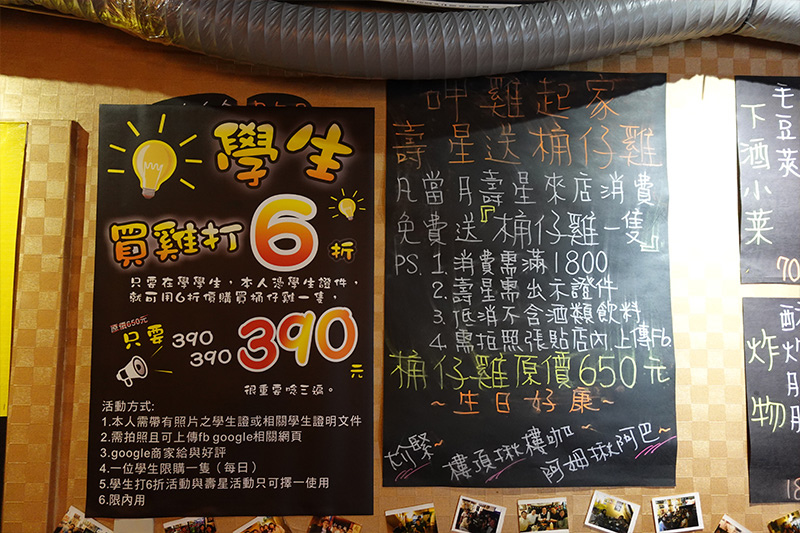 學生
買雞打6折
只要在學學生，本人憑學生證件，
就可用6折價購買桶仔雞一隻，
原價650元
只要 390
390 390元
很重要唸三遍。
活動方式:
1.本人需帶有照片之學生證或相關學生證明文件
2.需拍照且可上傳fb google相關網頁
3.google商家給與好評
4.一位學生限購一隻（每日）
5.學生打6折活動與壽星活動只可擇一使用
6.限內用
呷雞起家
壽星送桶仔雞
凡當月壽星來店消費
免費送『桶仔雞一隻』
PS. 1.消費需滿1800
2.壽星需出示證件
3.低消不含酒類飲料
4.需拍照張貼店內.上傳Fb
桶仔雞原價650元
~生日好康~
尬緊~
樓頂揪樓咖
阿姆揪阿巴~
毛豆莢
下酒小菜
70
炸物